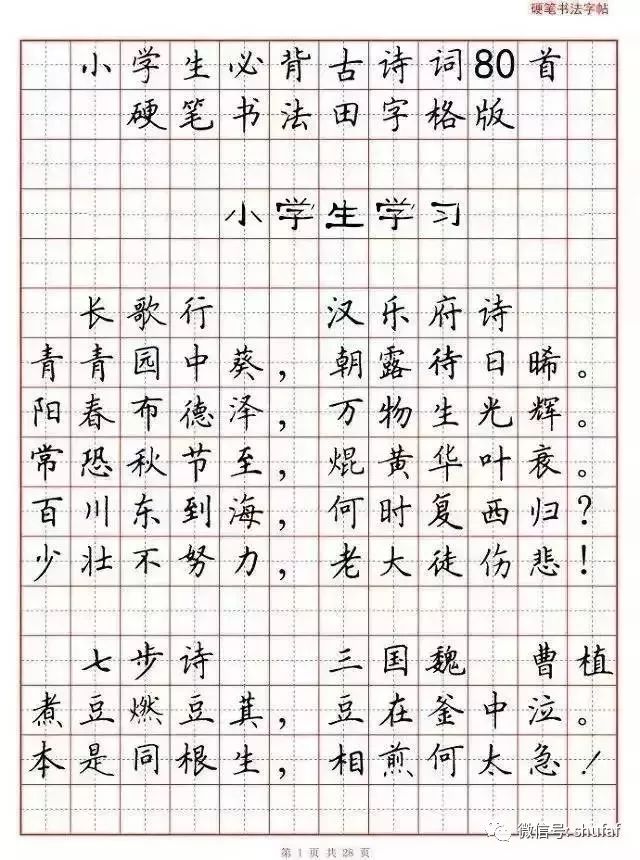 硬笔书法字帖
小学生必背古诗词80首
硬笔书法田字格版
小学生学习
长歌行 汉乐府诗
青青园中葵，朝露待日晞。
阳春布德泽，万物生光辉。
常恐秋节至，焜黄华叶衰。
百川东到海，何时复西归？
少壮不努力，老大徒伤悲！
七步诗 三国魏 曹植
煮豆燃豆萁，豆在釜中泣。
本是同根生，相煎何太急！
微信号: shufaf
第 1 页 共 28 页